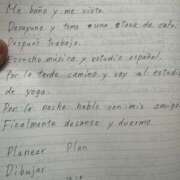 Me baño y me visto.
Desayuno y tomo una taza de café.
Después trabajo.
Escucho música y estudio español.
Por la tarde camino y voy al estudio
de yoga.
Por la noche hablo con mis amigos
Finalmente descanso y duermo.
Planear Plan
Dibujar